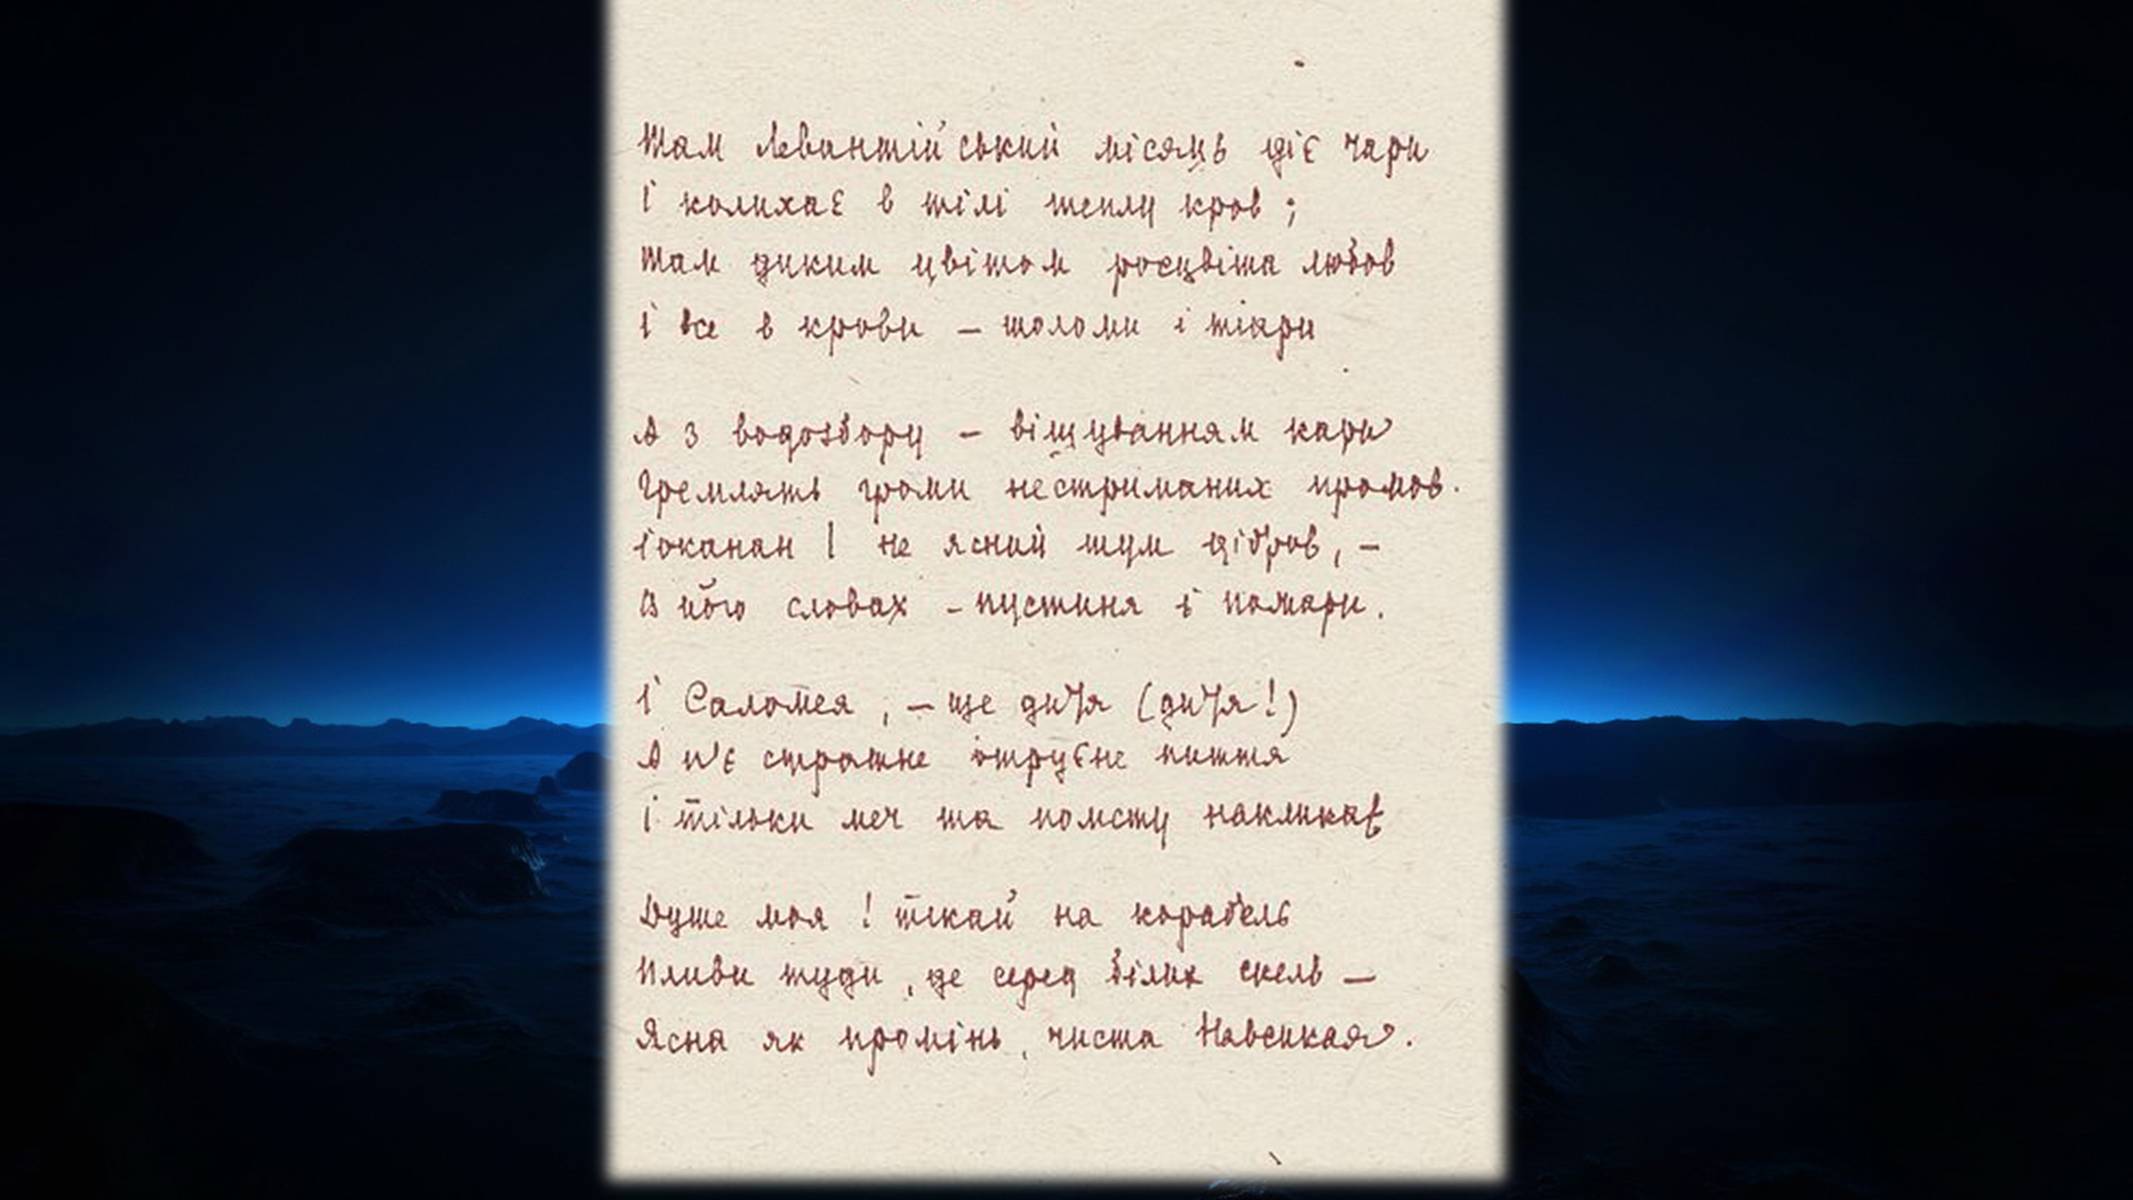 Там левантійський місяць діє чари
І колихає в тілі теплу кров ;
Там диким цвітом росцвіта любов
І все в крови – шоломи і тіари
А з водозбору – віщуванням кари
Гремлять громи нестриманих промов.
Іоканан ! не ясний шум дібров, –
В його словах – пустиня і пожари.
І Саломея, – ще дитя (дитя!)
А п'є страшне отруєне пиття
І тільки меч та помсту накликає
Душе моя ! тікай на корабель
Пливи туди, де серед білих скель –
Ясна як промінь, чиста Навсикая.